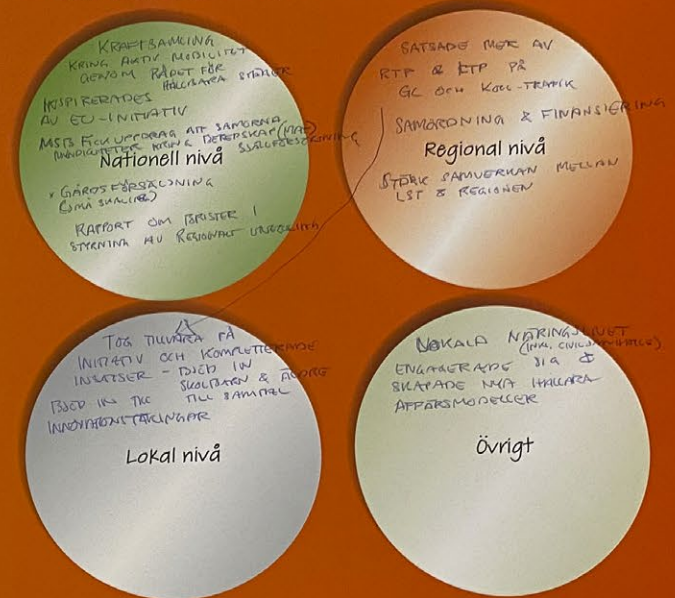 KRAFTSAMLING
KRING AKTIV MOBILITET
GENOM RÅDET FÖR
HÅLLBARA STÄDER
INSPIRERADES
AV EU-INITIATIV
MSB FICK UPPDRAG ATT SAMORDNA
MYNDIGHETER KRING BEREDSKAP (MAT)
SJÄLVFÖRSÖRJNING
Nationell nivå
GÅRDSFÖRSÄLJNING
(SMÅSKALIG)
RAPPORT OM BRISTER I
STYRNING AV REGIONALT
SATSADE MER AV
RTP & LTP PÅ
GC OCH KOLL-TRAFIK
SAMORDNING & FINANSIERING
Regional nivå
STÄRK SAMVERKAN MELLAN
LST & REGIONEN
TOG TILLVARA PÅ
INITIATIV OCH KOMPLETTERADE
INSATSER - BJÖD IN
SKOLBARN & ÄLDRE
BJÖD IN TILL SAMTAL
INNOVATIONSTÄVLINGAR
Lokal nivå
LOKALA NÄRINGSLIVET
(INKL. CIVILSAMHÄLLE)
ENGAGERADE SIG &
SKAPADE NYA HÅLLBARA
AFFÄRSMODELLER
Övrigt